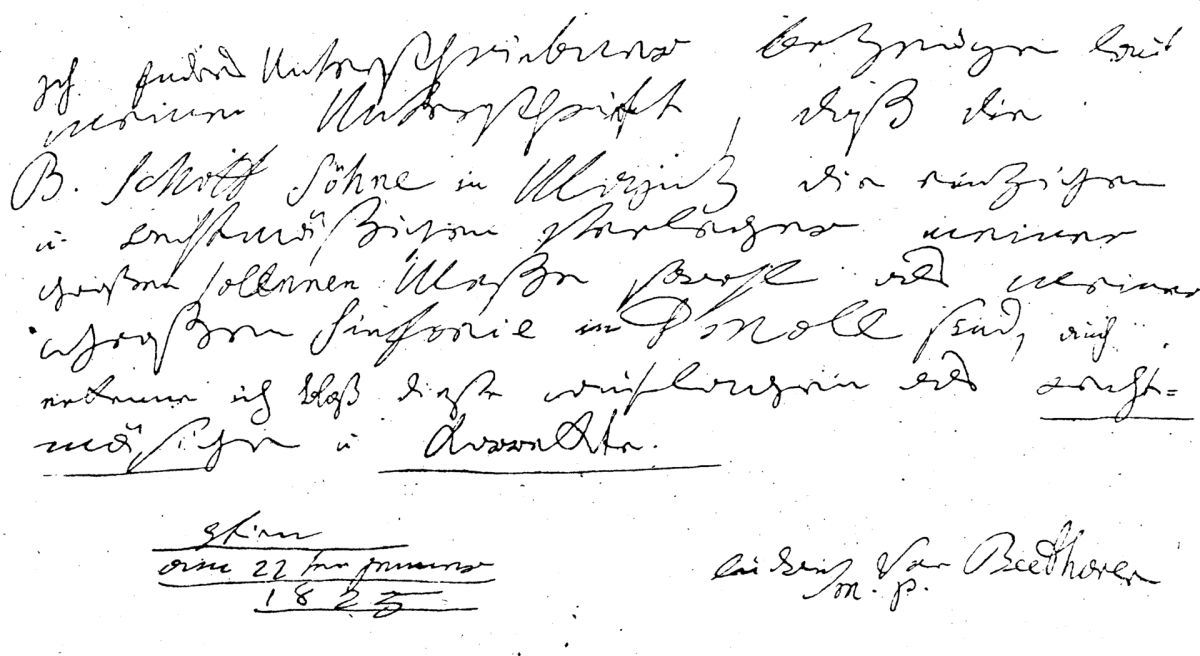 Ich Endes Unterschriebener bezeuge laut
meiner Unterschrift, daß die
B. Schott Söhne in Maynz die einzigen
u. rechtmäßigen Verleger meiner
großen solennen Meße sowohl als meiner
großen Sinfonie in D moll sind, auch
erkenne ich bloß diese Auflagen als recht=
mäßige u. korrekte.
Wien
am 22ten jenner
1825
ludwig van Beethoven
m. p.